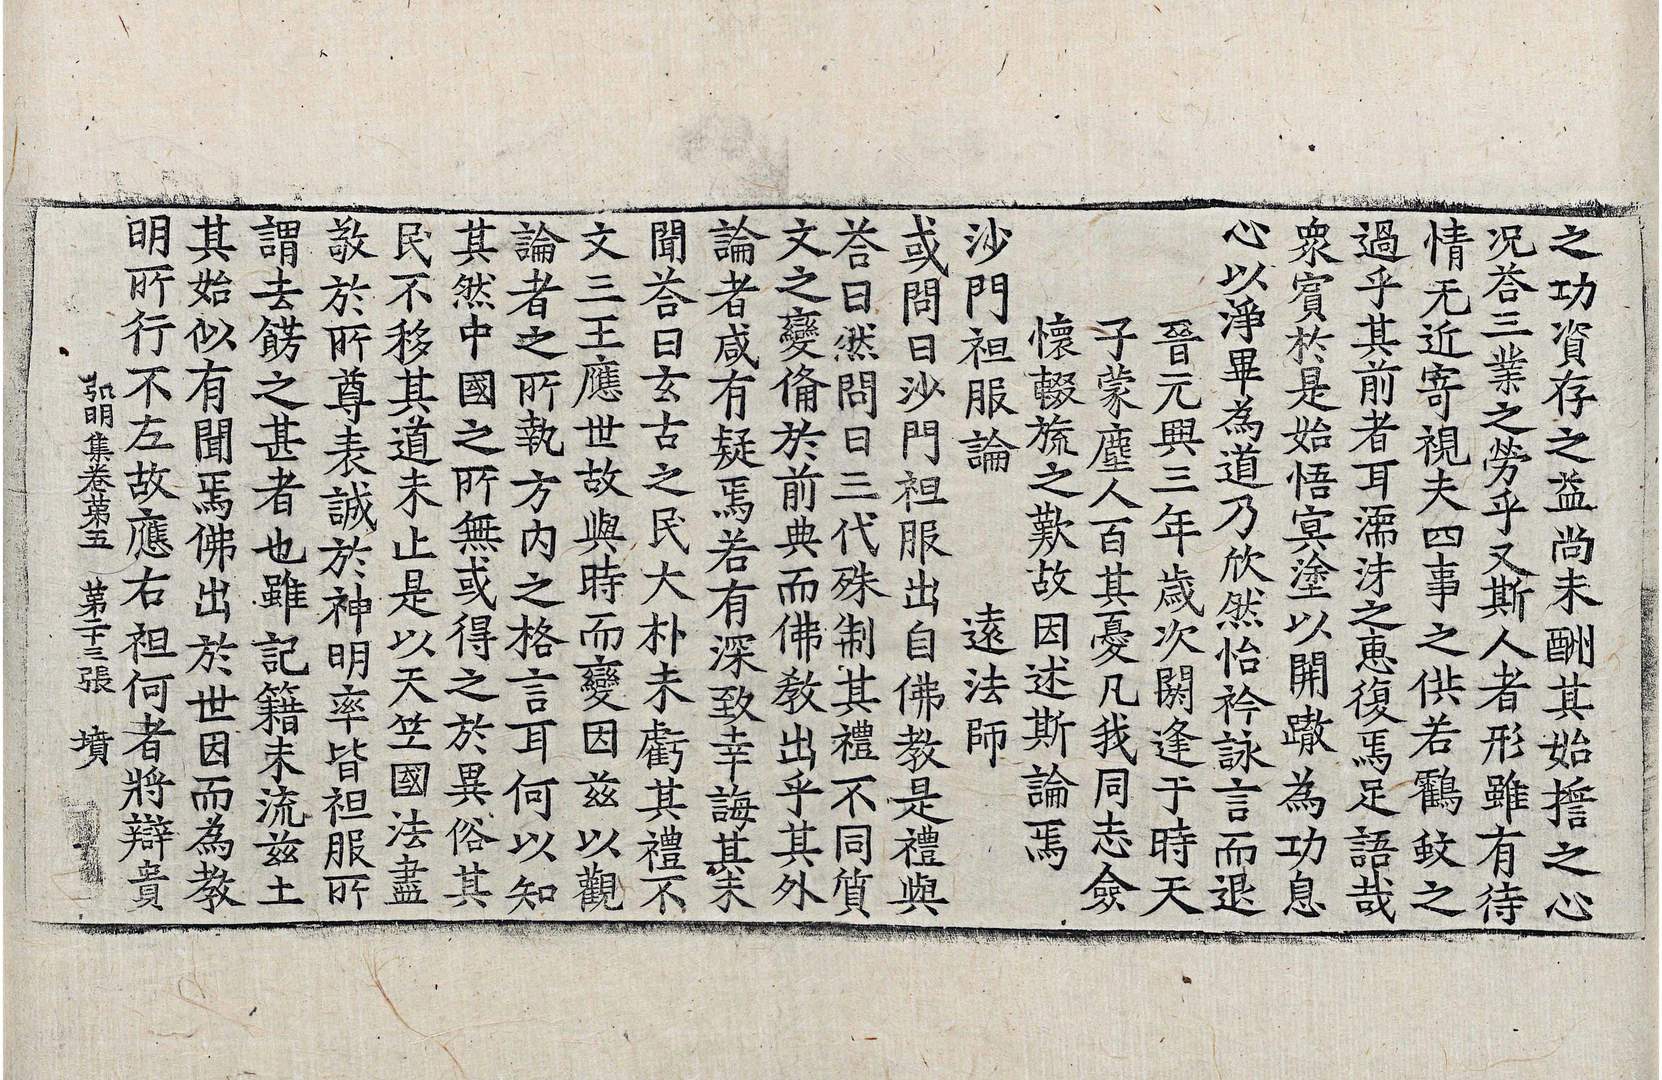 之功資存之益尚未酬其始擔之心
况荅三業之勞乎又斯人者形雖有待
情无近寄視夫四事之供若鸖蚊之
過乎其前者耳濡沫之惠復焉足語哉
衆賔於是始悟㝠塗以開轍為功息
心以淨畢為道乃欣然怡衿詠言而退
晉元興三年歳次閼逢于時天
子蒙塵人百其憂凡我同志僉
懷輟旒之歎故因述斯論焉
沙門袒服論 遠法師
或問曰沙門袒服出自佛教是禮與
荅曰然問曰三代殊制其禮不同質
文之變俻於前典而佛教出乎其外
論者咸有疑焉若有深致幸誨其未
聞荅曰玄古之民大朴未虧其禮不
文三王應世故與時而變因兹以觀
論者之所執方内之格言耳何以知
其然中國之所無或得之於異俗其
民不移其道未止是以天竺國法盡
敬於所尊表誠於神明率皆袒服所
謂去餝之甚者也雖記籍未流兹土
其始似有聞焉佛出於世因而為教
明所行不左故應右袒何者將辯貴
弘明集卷苐五 苐二十三張 墳